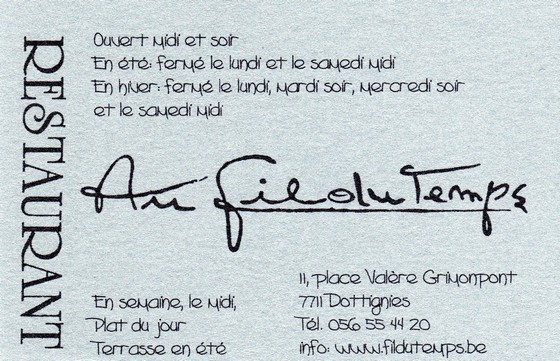 RESTAURANT
Ouvert midi et soir
En été: fermé le lundi et le samedi midi
En hiver: fermé le lundi, mardi soir, mercredi soir
et le samedi midi
Au fil du Temps
En semaine, le midi,
Plat du jour
Terrasse en été
11, place Valère Grimonpont
7711 Dottignies
Tél. 056 55 44 20
info: www.fildutemps.be